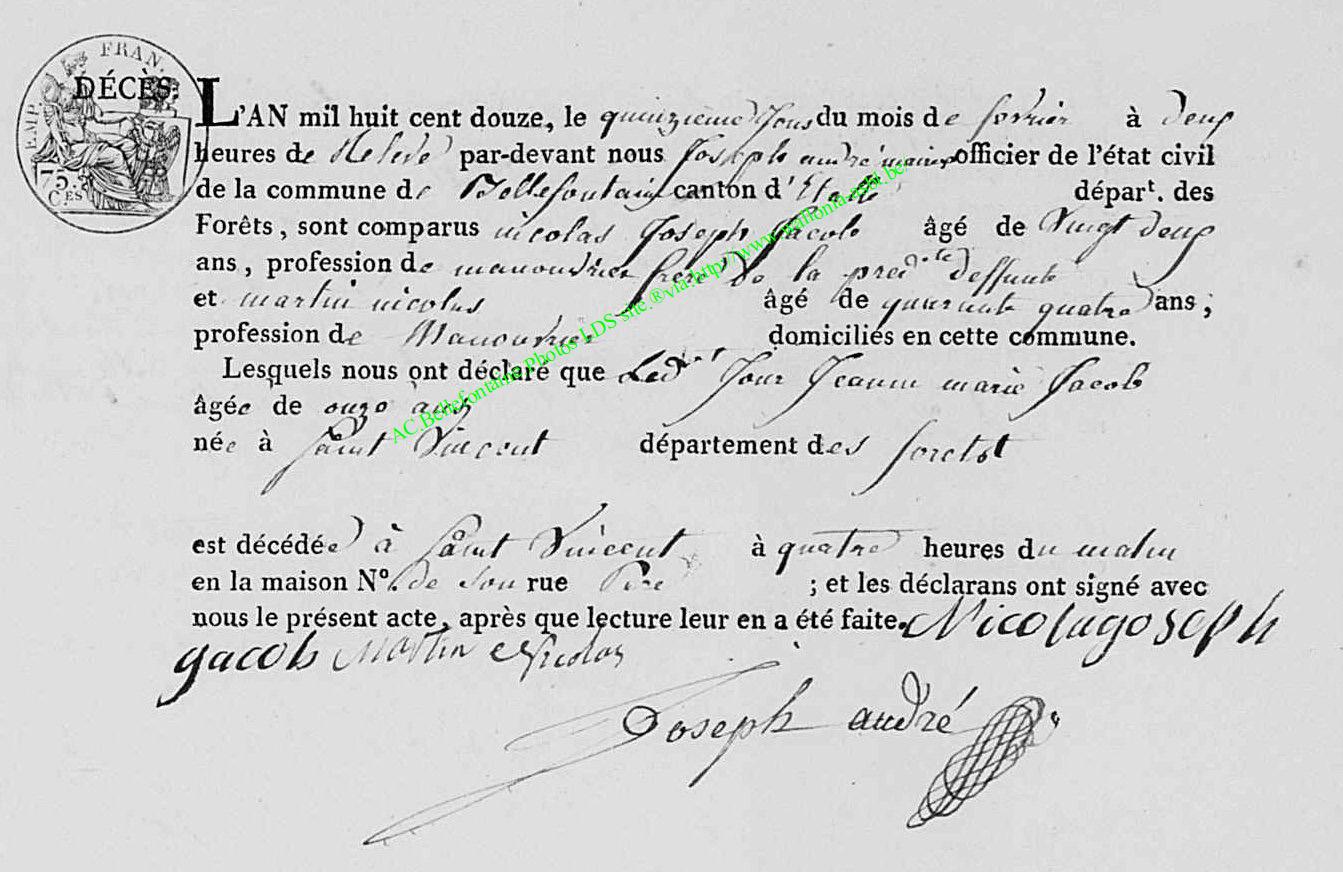 EMP. FRAN.
75. CES
DÉCÈS.
L'AN mil huit cent douze, le quinzieme Jour du mois de fevrier à deux
heures de Relevé par-devant nous Joseph andré maire officier de l'état civil
de la commune de Bellefontaine canton d'Etalle départ. des
Forêts, sont comparus nicolas Joseph Jacob âgé de Vingt deux
ans, profession de manouvrier frere de la predite deffunte
et martin nicolas âgé de quarante quatre ans;
profession de Manouvrier domiciliés en cette commune.
Lesquels nous ont déclaré que Ledit Jour Jeanne marie Jacob
âgée de onze ans
née à Saint Vincent département des forets
est décédée à Saint Vincent à quatre heures du matin
en la maison No. de Son rue Pere ; et les déclarans ont signé avec
nous le présent acte, après que lecture leur en a été faite. Nicolas Joseph
jacob Martin Nicolas
Joseph andré
AC.Bellefontaine Photos LDS site ®via http://www.wallonia-asbl.be/